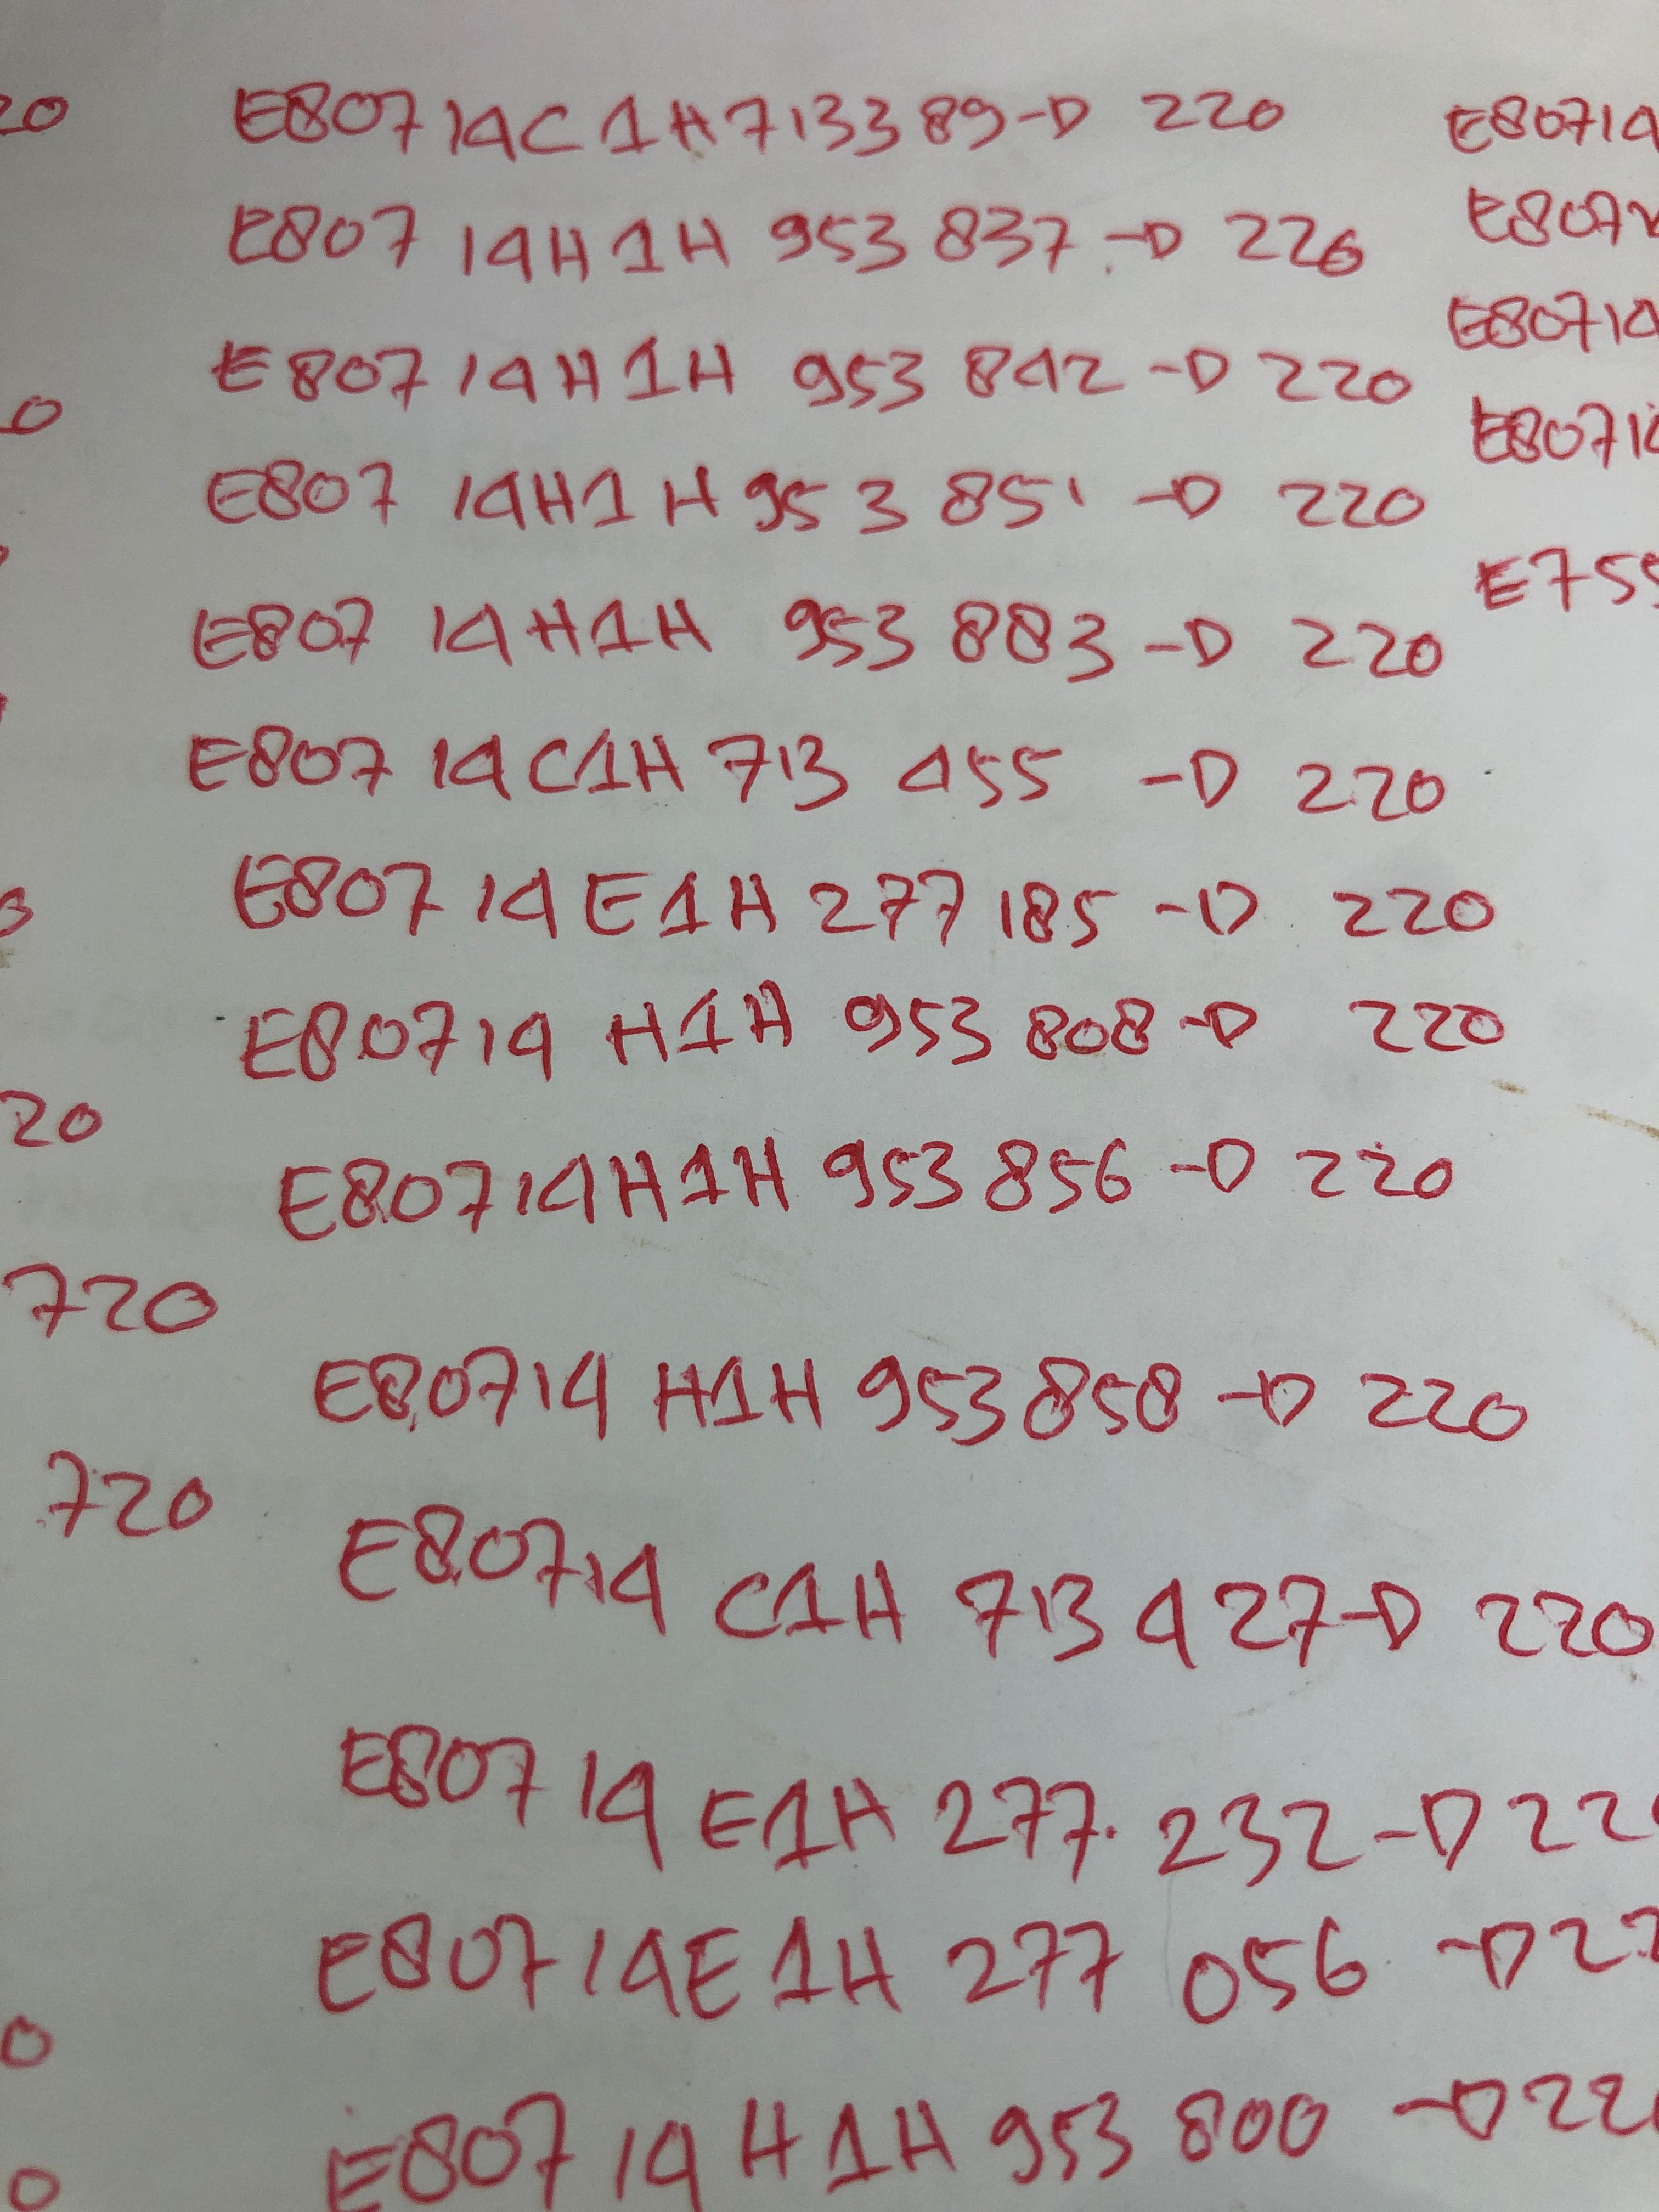 20
E80714C1H713389-D 220
E80714
E807 14H1H 953 837-D 226
E807
E807 14H1H 953 842-D 220
E80714
0
E807 14H1H 953 851 -D 220
E8071
E807 14H1H 953 883-D 220
E755
E807 14C1H 713 455 -D 220
E807 14E1H 277 185-D 220
E80714 H1H 953 808-D 220
20
E80714H1H 953 856-D 220
720
E80714 H1H 953 858-D 220
720
E80714 C1H 713 427-D 220
E807 14 E1H 277 232-D 22
E807 14E1H 277 056 -D 22
0
E807 14 H1H 953 800 -D 22
0